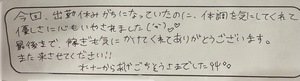 今回、出勤休みがちになっていたのに、体調を気にしてくれて
優しさに心もいやされました(˘ω˘)♡
最後まで、稼ぎも気にかけてくれてありがとうございます。
また来させてください!!
オーナーからも ごちそうさまでした